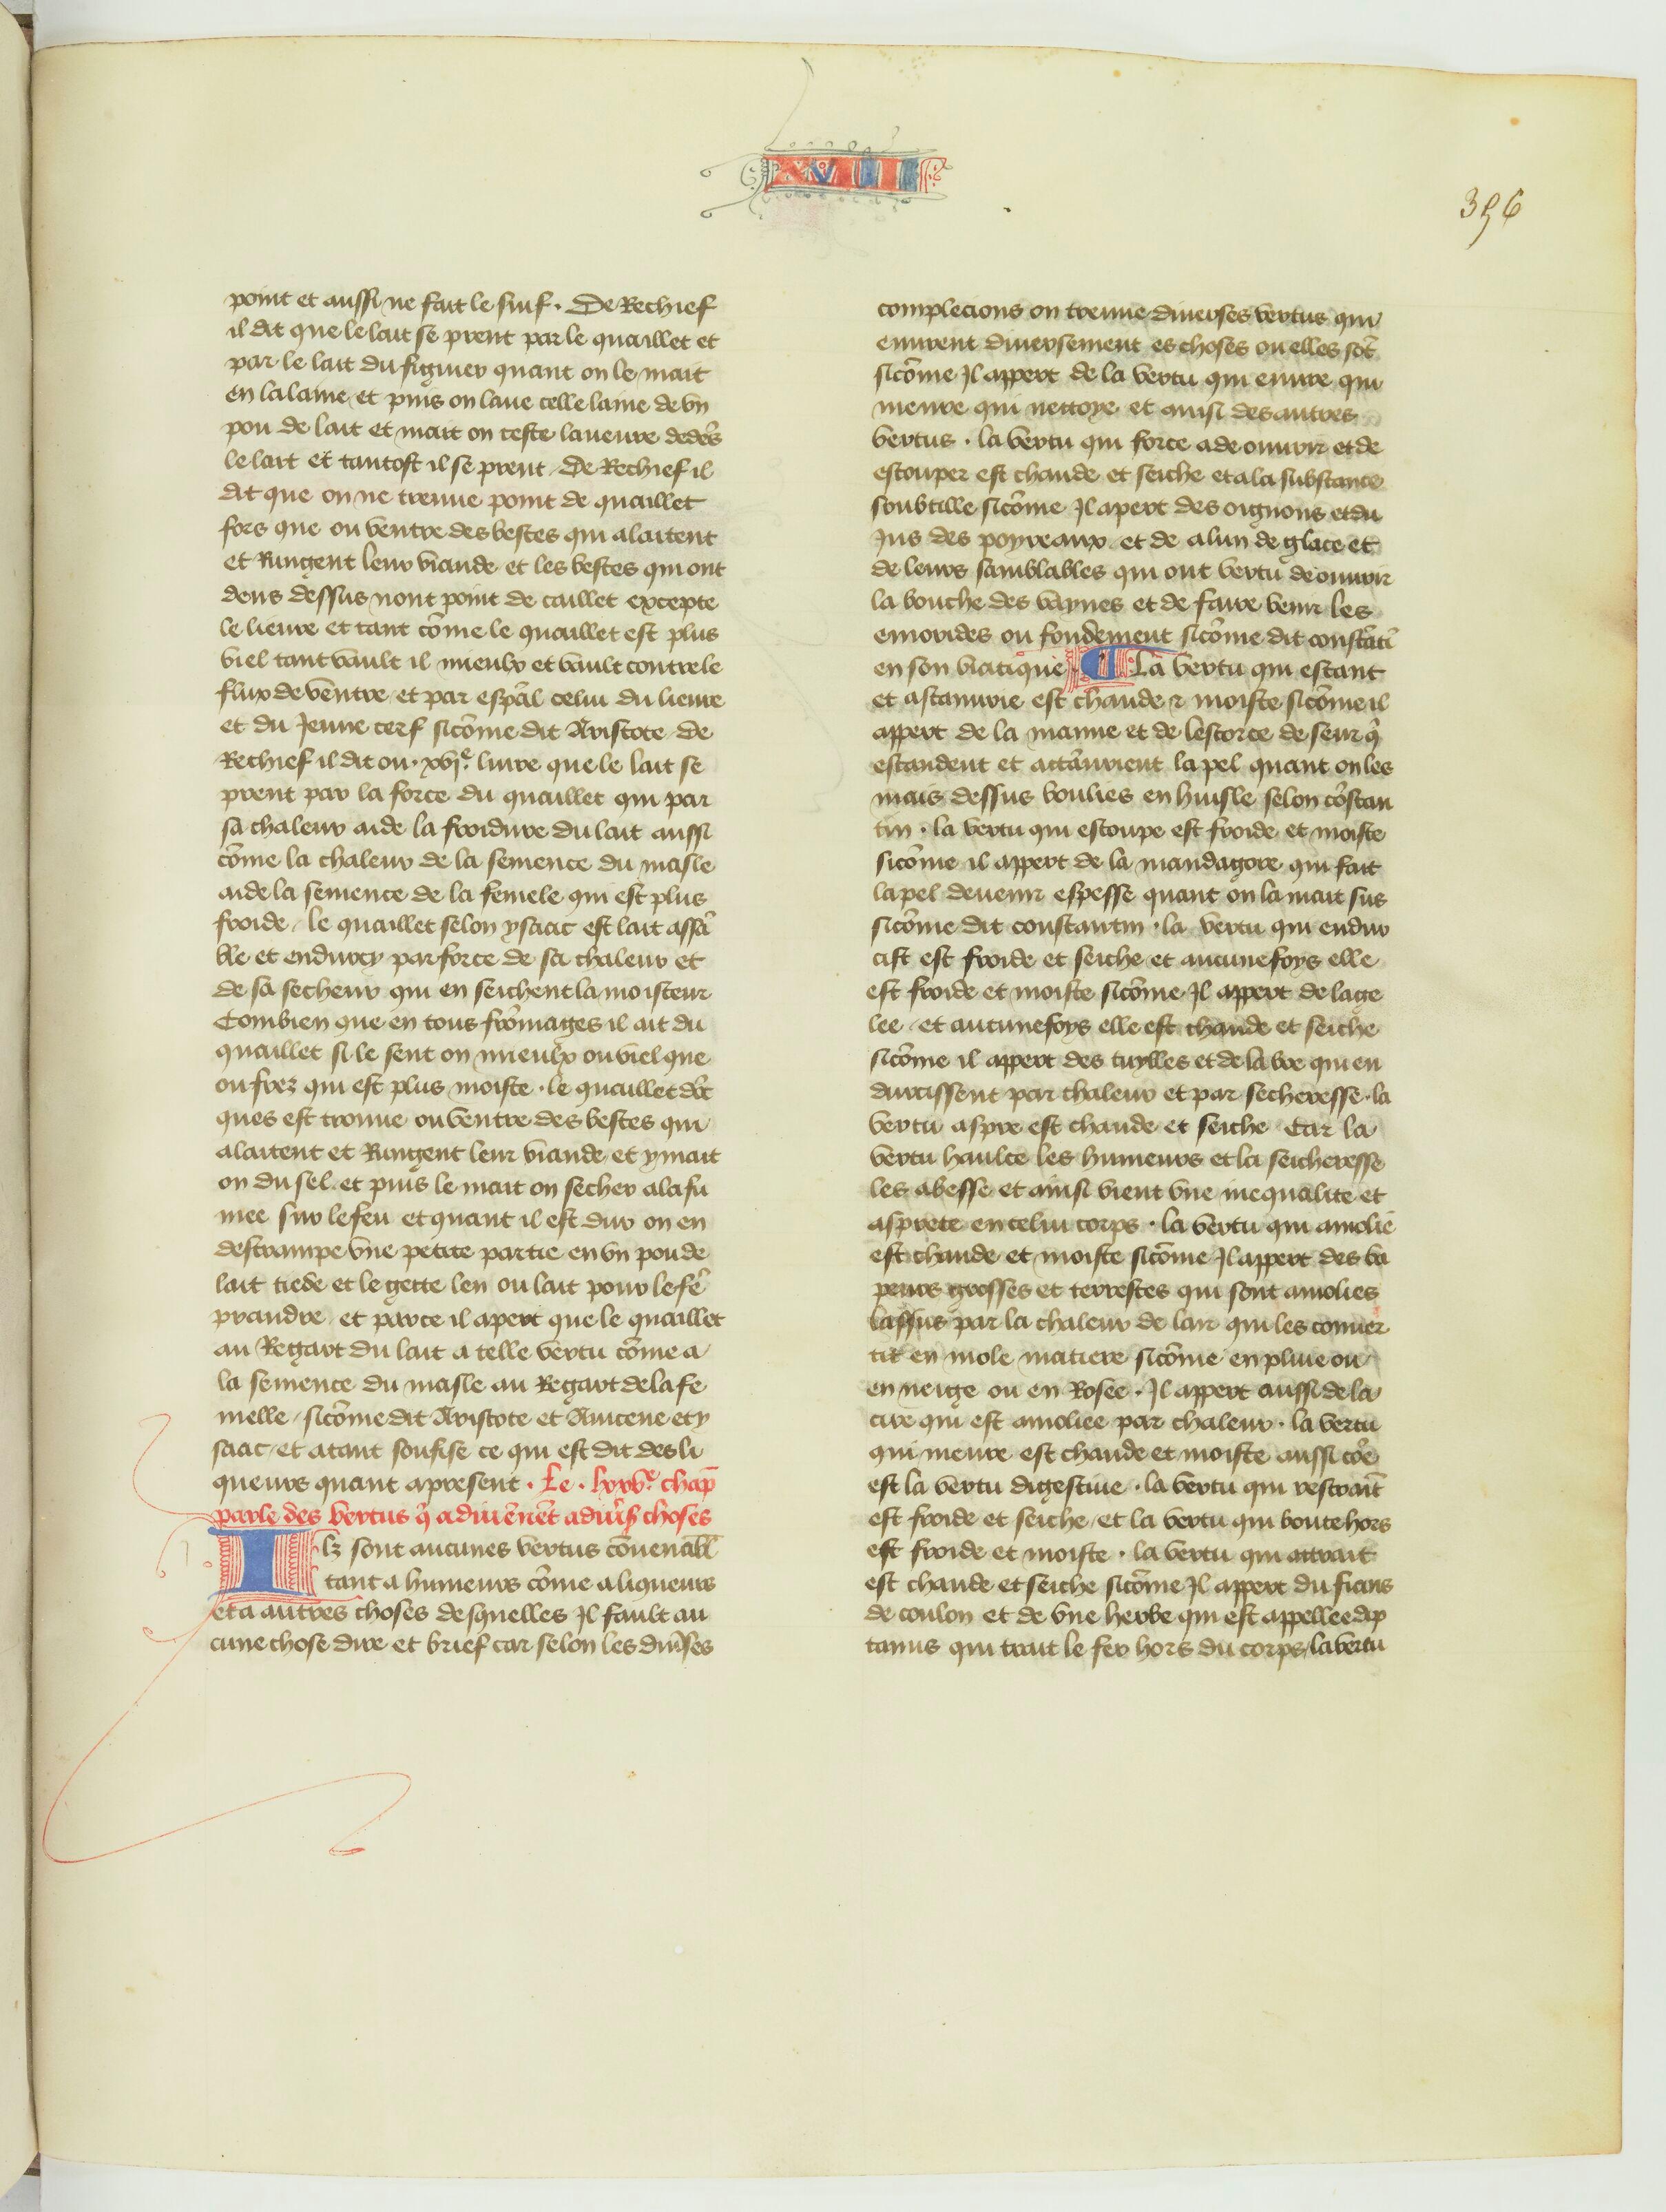 XVIII
396
point et aussi ne fait le suif. De Rechief
il dit que le lait se prent par le quaillet et
par le lait du figuier quant on le mait
en la laine et puis on laue celle laine de vn
pou de lait et mait on ceste laueure dedẽs
le lait et tantost il se prent. De Rechief il
dit que on ne treuue point de quaillet
fors que ou ventre des bestes qui alaitent
et Rungent leur viande et les bestes qui ont
dens dessus nont point de caillet excepte
le lieure et tant cõme le quaillet est plus
viel tant vault il mieulx et vault contre le
flux de ventre et par esp̃al celui du lieure
et du Jeune cerf sicõme dit Aristote De
Rechief il dit ou. xvj.e liure que le lait se
prent par la force du quaillet qui par
sa chaleur aide la froidure du lait aussi
cõme la chaleur de la semence du masle
aide la semence de la femele qui est plus
froide. le quaillet selon ysaac est lait assã
ble et endurcy par force de sa chaleur et
de sa secheur qui en seichent la moisteur
Combien que en tous frõmages il ait du
quaillet si le sent on mieulx ou viel que
ou frez qui est plus moiste. le quaillet dõc
ques est trouue ou ventre des bestes qui
alaitent et Rungent leur viande et y mait
on du sel et puis le mait on secher a la fu
mee sur le feu et quant il est dur on en
destrampe vne petite partie en vn pou de
lait tiede et le gette len ou lait pour le fẽ
prandre et par ce il apert que le quaillet
au Regart du lait a telle vertu cõme a
la semence du masle au Regart de la fe
melle. sicõme dit Aristote et Auicene et y
saac et atant soufise ce qui est dit des li
queurs quant apresent. Le. lxxv.e chap̃
parle des vertus q̃ aduiẽnẽt a diũs choses
Ilz sont aucunes vertus cõuenabl̃
tant a humeurs cõme a liqueurs
et a autres choses desquelles Jl fault au
cune chose dire et brief car selon les diũses
complecions on treuue diuerses vertus qui
euurent diuersement es choses ou elles sõt
sicõme Jl appert de la vertu qui euure qui
meure qui nettoye et ainsi des autres
vertus. la vertu qui force a de ouurir et de
estouper est chaude et seiche et a la substance
soubtille sicõme Jl apert des oignons et du
Jus des poyreaux et de alun de glace et
de leurs samblables qui ont vertu de ouurir
la bouche des vaynes et de faire venir les
emorides ou fondement sicõme dit constãti
en son viatique. La vertu qui estant
et astanurie est chaude ⁊ moiste sicõme il
appert de la manne et de lestorce de seur q̃
estandent et attãurient la pel quant on les
mais dessus boulies en huisle selon cõstan
tin. la vertu qui estoupe est froide et moiste
sicõme il appert de la mandagore qui fait
la pel deuenir espesse quant on la mait sus
sicõme dit constantin. la vertu qui endur
cist est froide et seiche et aucunefoys elle
est froide et moiste sicõme Jl appert de la ge
lee. et aucunefoys elle est chaude et seiche
sicõme il appert des tuylles et de la boe qui en
durcissent par chaleur et par secheresse. la
vertu aspre est chaude et seiche Car la
vertu haulce les humeurs et la seicheresse
les abesse et ainsi vient vne inequalite et
asprete en celui corps. la vertu qui amolie
est chaude et moiste sicõme Jl appert des va
peurs grosses et terrestes qui sont amolies
lassus par la chaleur de lair qui les conuer
tit en mole matiere sicõme en pluie ou
en neige ou en Rosee. Jl appert aussi de la
cire qui est amoliee par chaleur. la vertu
qui meure est chaude et moiste aussi cõe
est la vertu digestiue. la vertu qui restraĩt
est froide et seiche et la vertu qui boute hors
est froide et moiste. la vertu qui attrait
est chaude et seiche sicõme Jl appert du fians
de coulon et de vne herbe qui est appellee dip
tanus qui trait le fer hors du corps / la vertu